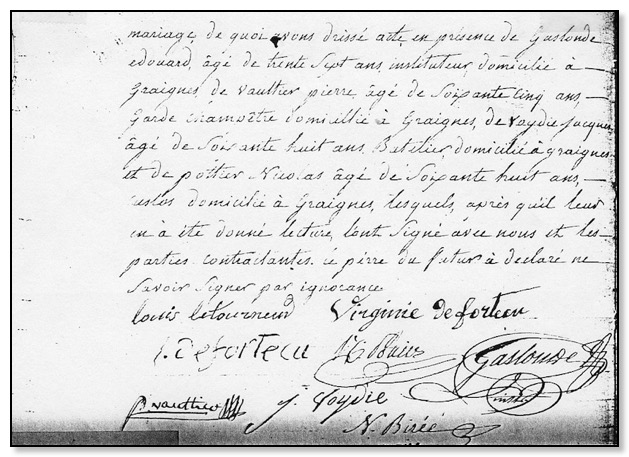 mariage, de quoi avons dréssé acte, en présence de Gaslonde
edouard, âgé de trente Sept ans, instituteur, domicilié à
Graignes, de vaultier pierre, âgé de Soixante Cinq ans,
Garde champêtre domicillié à Graignes, de Voydie Jacques
âgé de Soixante huit ans, Batelier, domicilié à graignes
et de pottier Nicolas âgé de Soixante huit ans,
domicilié à Graignes, lesquels, après qu'il leur
en à été donné lecture, l'ont Signé avec nous et les
parties contractantes, le père du futur à déclaré ne
Savoir Signer par ignorance
Louis letourneur Virginie deforteu
J. Deforteu Gaslonde
p. vaultier J. Voydie
N. Birée